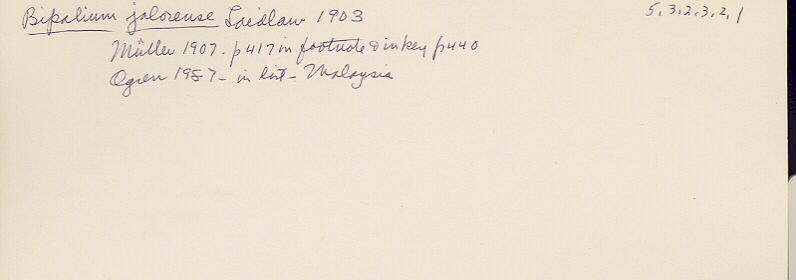 Bipalium jalorense Laidlaw 1903 5,3,2,3,2,1
Müller 1907 - p417 in footnote & in key p440
Ogren 1987 - in list - Malaysia